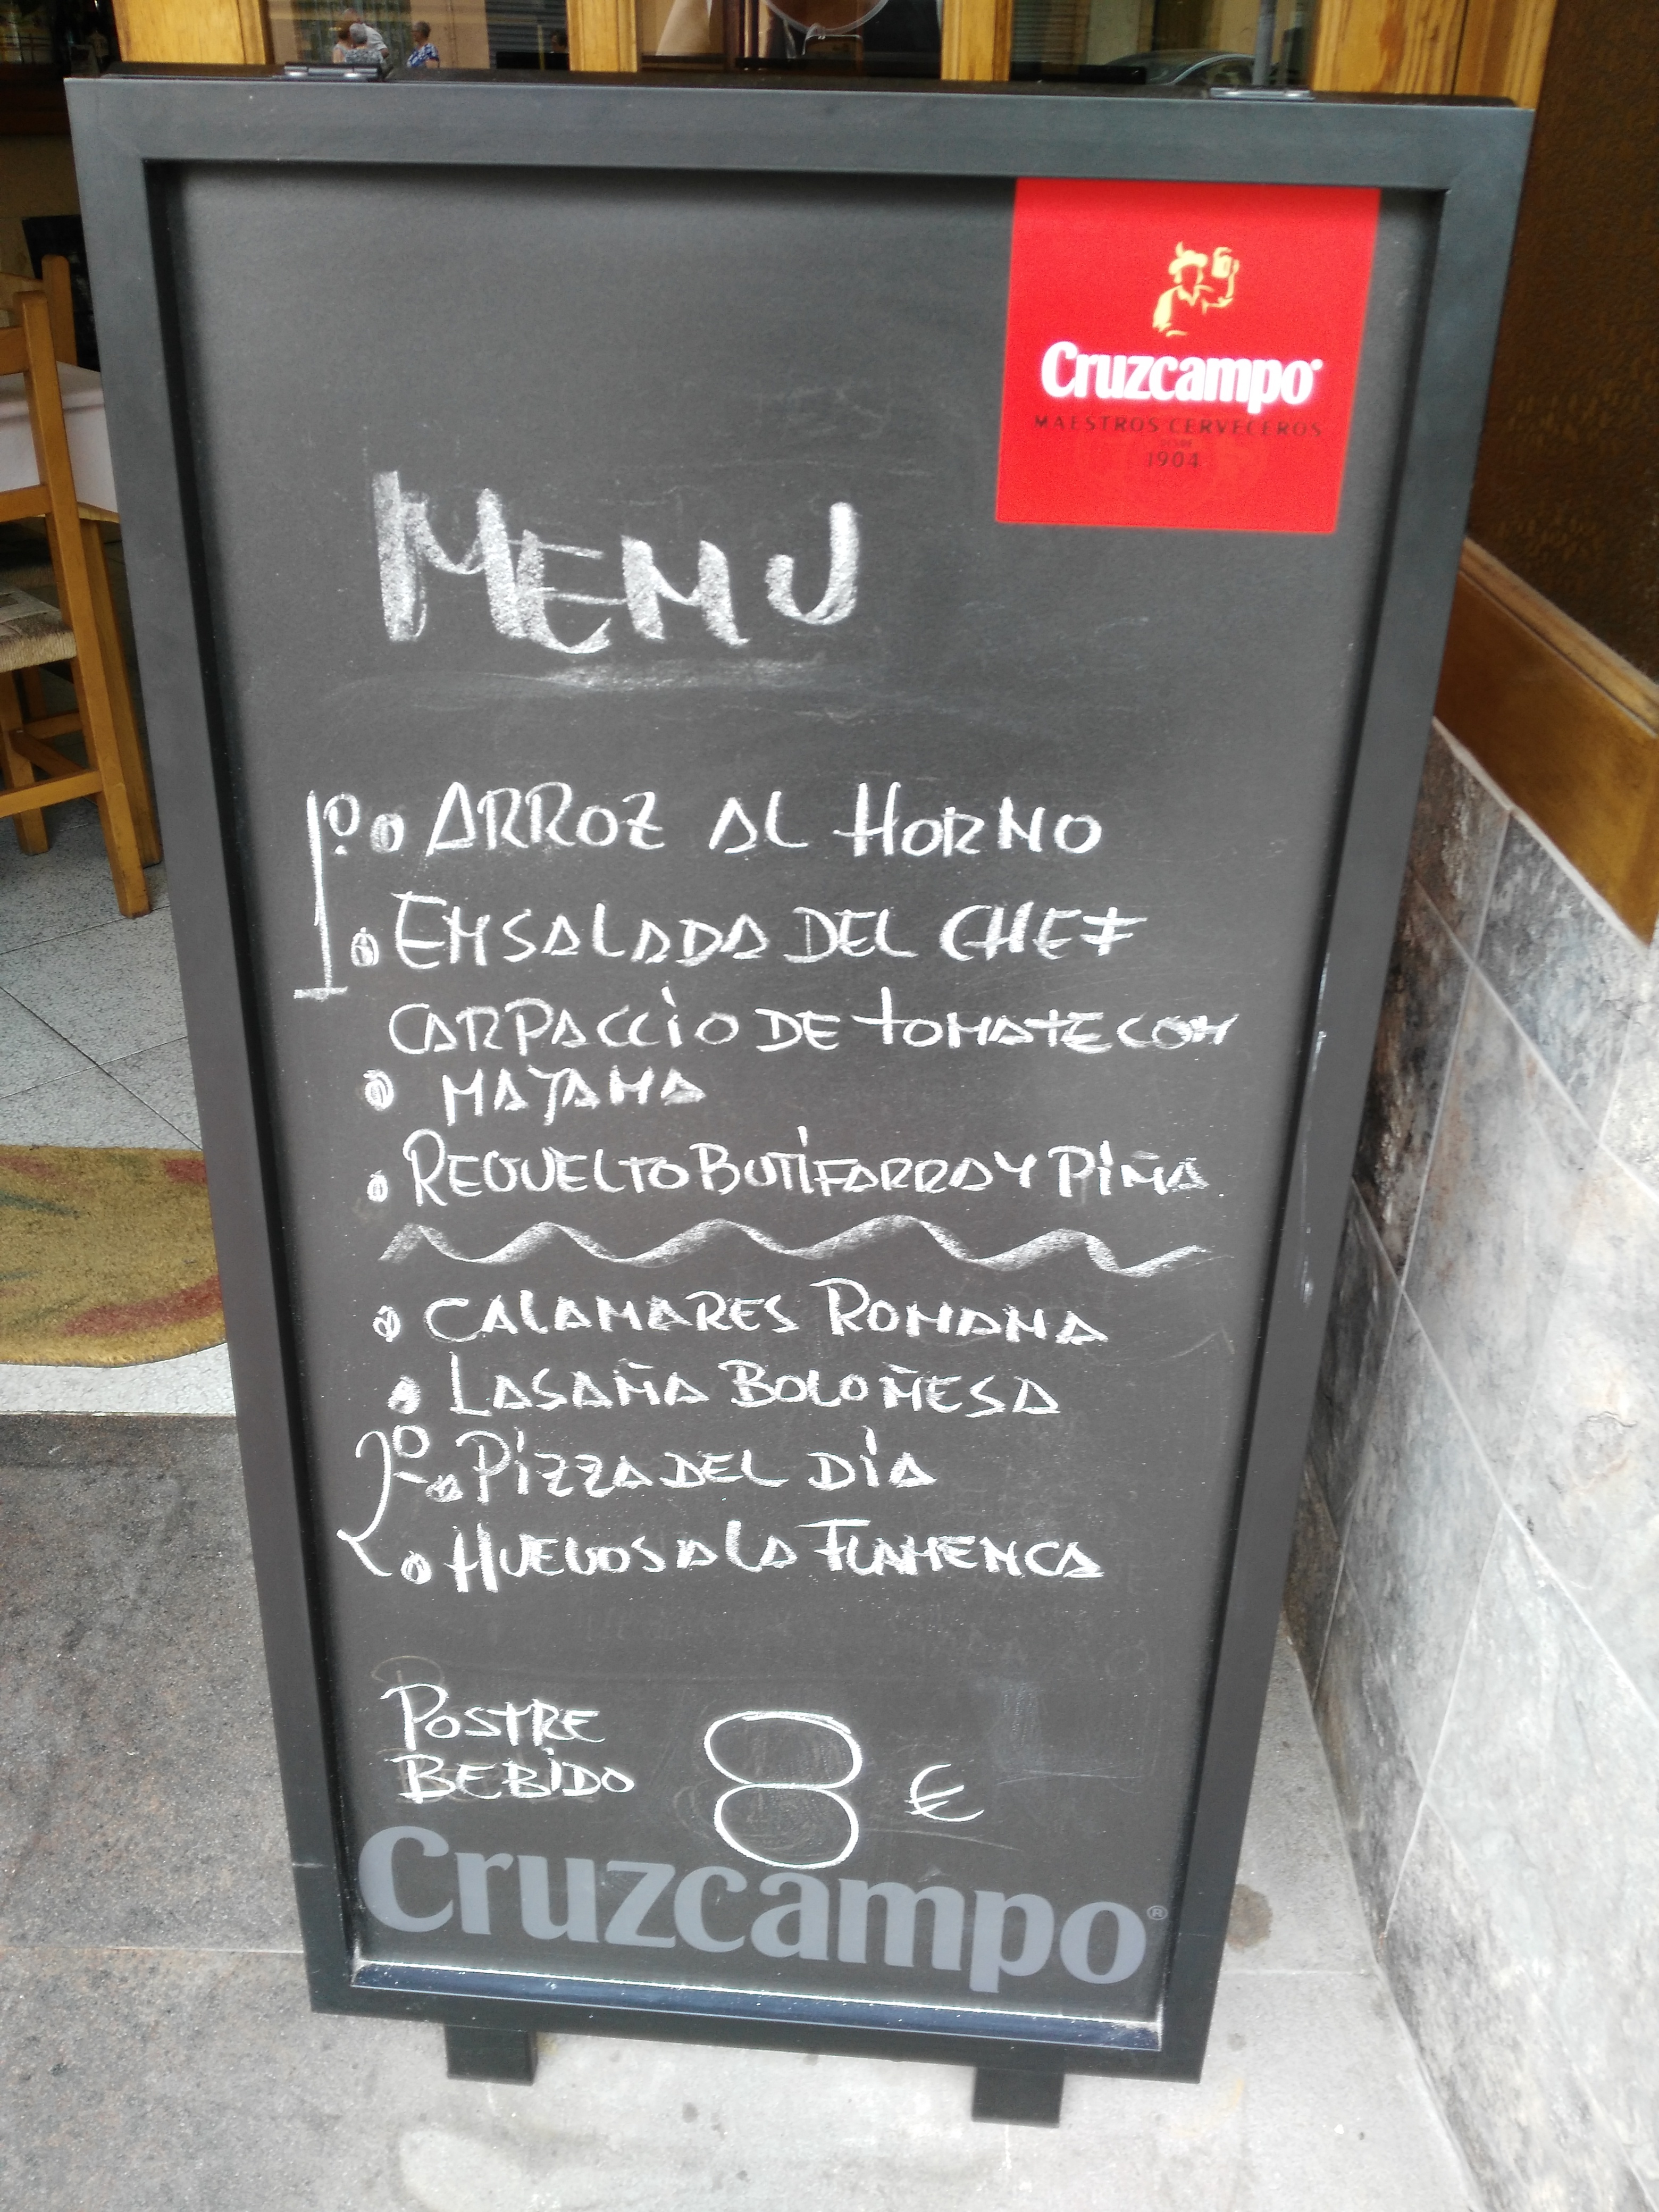 Cruzcampo
MAESTROS CERVECEROS
DESDE
1904
MENU
1º. ARROZ AL HORNO
ENSALADA DEL CHEF
CARPACCIO DE TOMATE CON
MAJAMA
REVUELTO BUTIFARRA Y PIÑA
CALAMARES ROMANA
LASAÑA BOLOÑESA
2º PIZZA DEL DÍA
HUEVOS A LA FLAMENCA
POSTRE
BEBIDO 8 €
Cruzcampo®